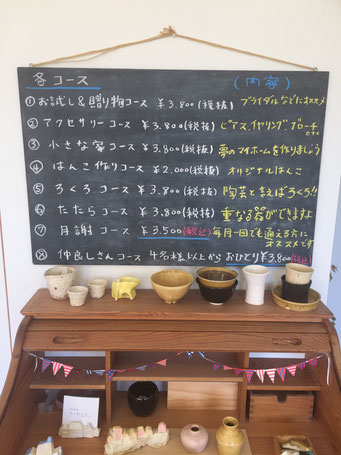 各コース （内容）
①お試し＆贈り物コース ￥3.800(税抜) ブライダルなどにオススメ
②アクセサリーコース ￥3.800(税抜) ピアス、イヤリング、ブローチetc
③小さな家コース ￥3.800(税抜) 夢のマイホームを作りましょう
④はんこ作りコース ￥2.000(税抜) オリジナルはんこ
⑤ろくろコース ￥3.800(税抜) 陶芸と言えばろくろ!!
⑥たたらコース ￥3.800(税抜) 重なる器ができますよ
⑦月謝コース ￥3.500(税込) 毎月一回でも通える方にオススメです
⑧仲良しさんコース 4名様以上から おひとり￥3.800(税込)